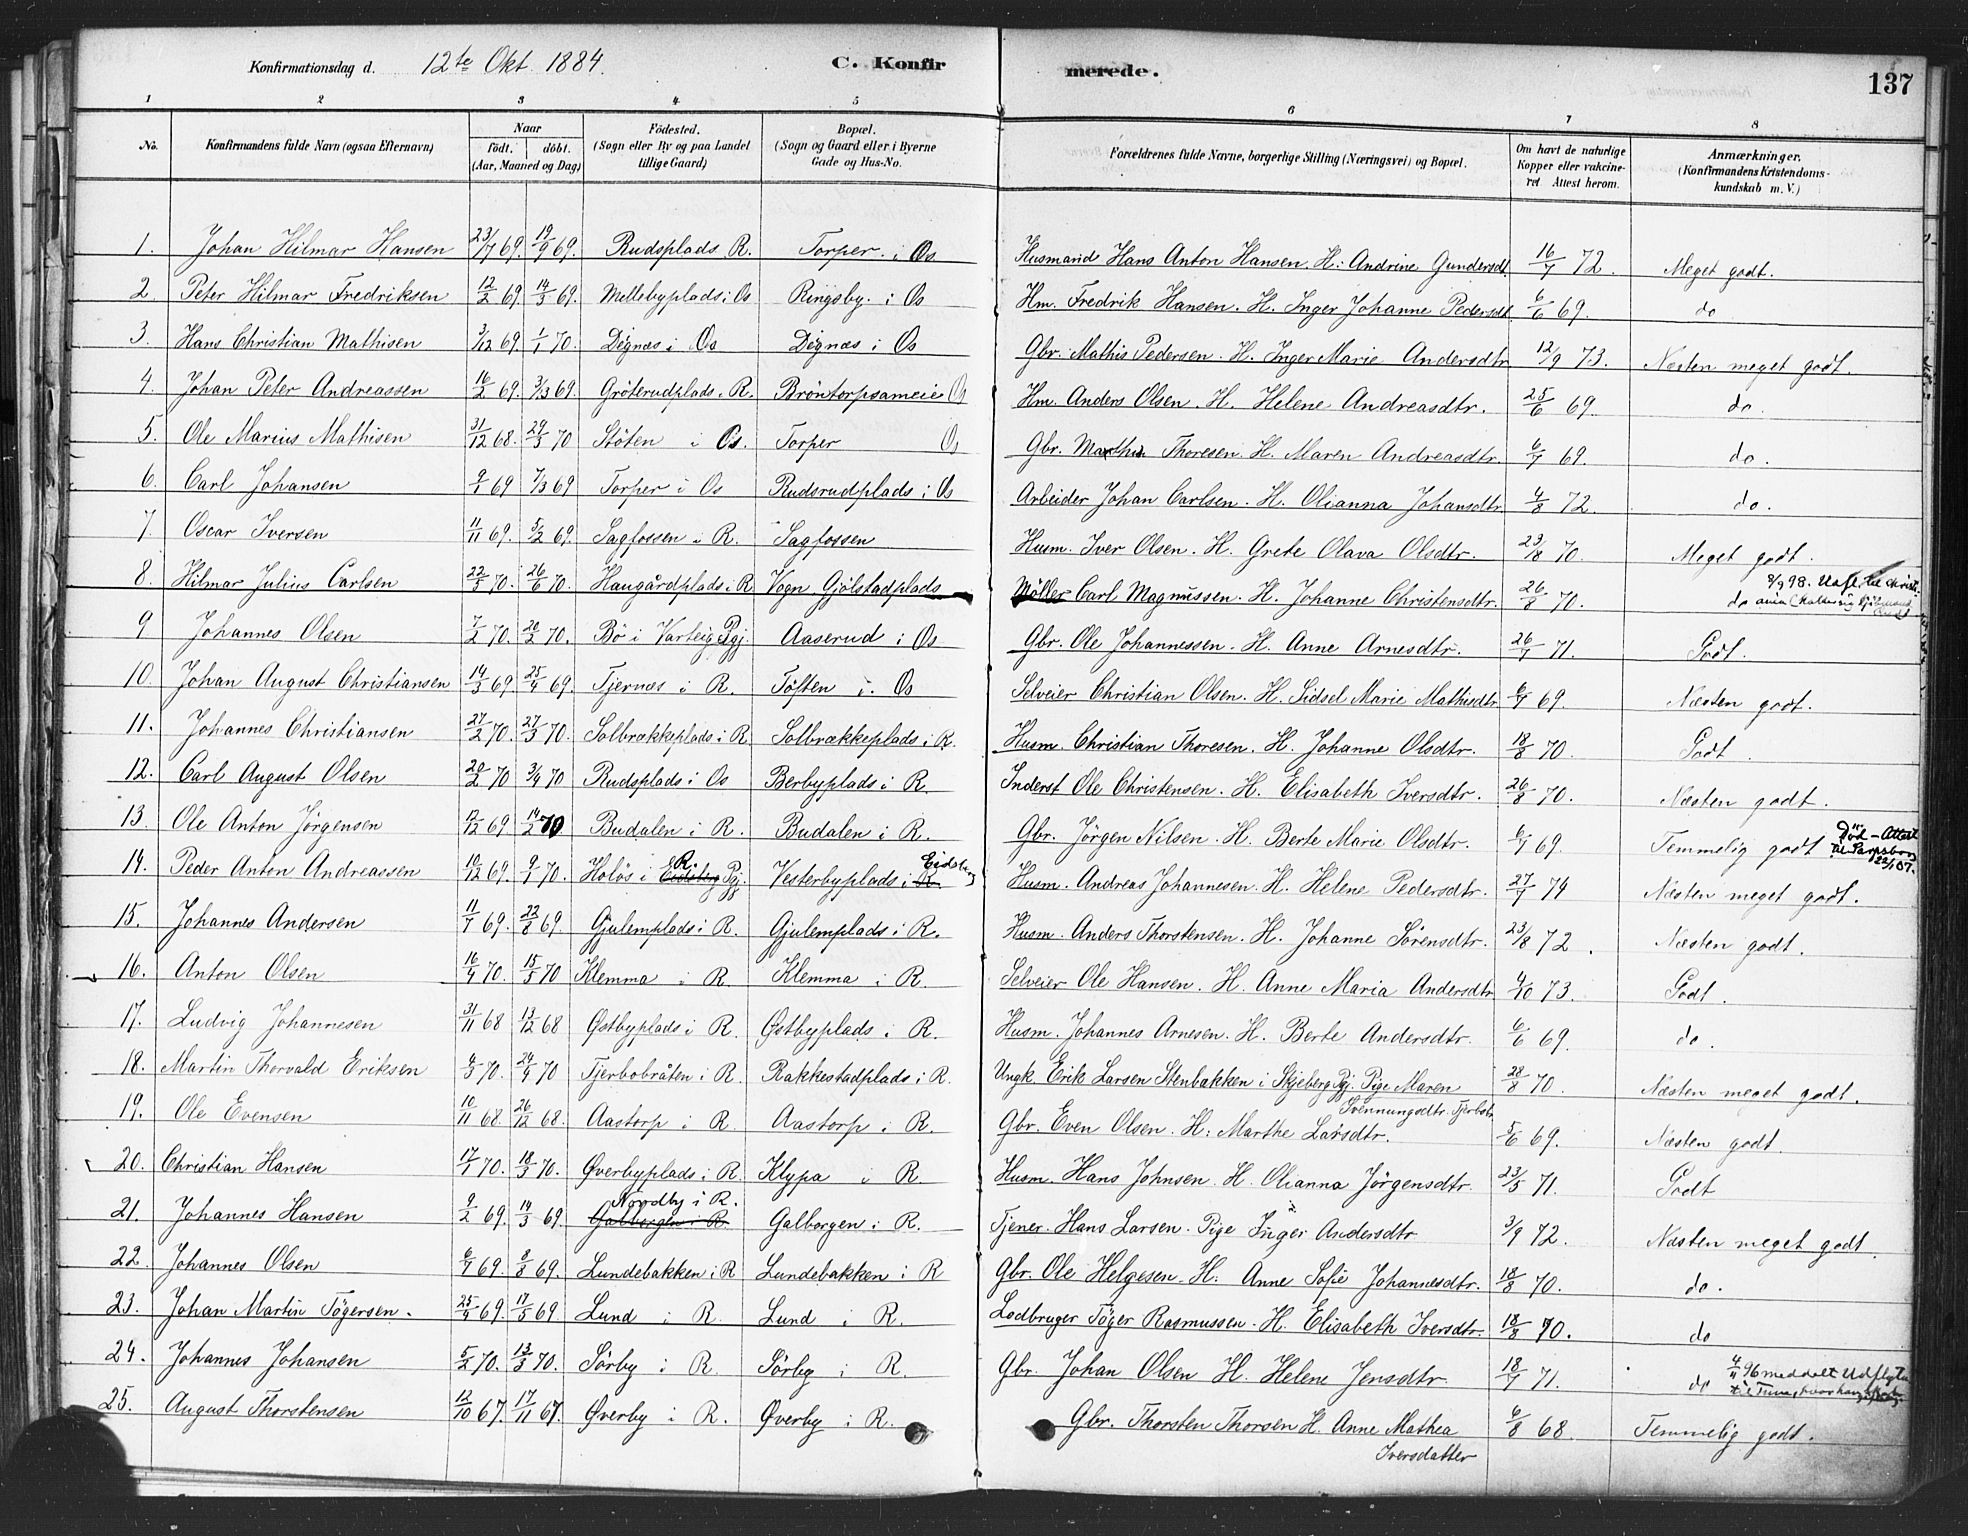 Konfirmationsdag d. 12te Okt. 1884. C. Konfirmerede. 137
1 2 3 4 5 6 7 8
No. Konfirmandens fulde Navn (ogsaa Efternavn) Naar født. døbt. (Aar, Maaned og Dag) Födested. (Sogn eller By og paa Landet tillige Gaard) Bopæl. (Sogn og Gaard eller i Byerne Gade og Hus-No.) Forældrenes fulde Navne, borgerlige Stilling (Næringsvei) og Bopæl. Om havt de naturlige Kopper eller vakcineret Attest herom. Anmærkninger. (Konfirmandens Kristendomskundskab m. V.)
1. Johan Hilmar Hansen 23/7 69. 19/9 69. Rudsplads R. Torper i Os Husmand Hans Anton Hansen. H: Andrine Gundersdt. 16/7 72. Meget godt.
2. Peter Hilmar Fredriksen 12/2 69 14/3 69. Mellebyplads i Os Ringsby i Os Hm. Fredrik Hansen. H. Inger Johanne Pedersdt. 6/6 69. do
3. Hans Christian Mathisen 3/12 69. 1/1 70. Degnæs i Os Degnæs i Os Gbr. Mathis Pedersen. H. Inger Marie Andersdtr. 12/9 73. Næsten meget godt.
4. Johan Peter Andreassen 16/2 69. 3/3 69. Gröterudplads. R. Bröntorpsameie Os Hm. Anders Olsen. H. Helene Andreasdtr. 25/6 69. do.
5. Ole Marius Mathisen 31/12 68. 29/3 70 Stöten i Os. Torper Os Gbr. Thoresen. H. Maren Andreasdtr. 6/7 69. do.
6. Carl Johansen 9/1 69 7/3 69 Torper i Os Rudsrudplads i Os Arbeider Johan Carlsen. H. Olianna Johansdtr. 4/8 72. do.
7. Oscar Iversen 11/11 69. 5/2 69. Sagfossen i R. Sagfossen Husm. Iver Olsen. H. Grete Olava Olsdtr. 23/8 70. Meget godt.
8. Hilmar Julius Carlsen 22/5 70. 26/6 70. Haugårdplads i R Vogn Gjölstadplads Möller Carl Magnussen. H. Johanne Christensdtr. 26/8 70. do
9 Johannes Olsen 7/2 70. 20/2 70. Bö i Varteig Pgj. Aaserud i Os Gbr. Ole Johannessen. H. Anne Arnesdtr. 26/7 71. Godt.
10. Johan August Christiansen 14/3 69. 25/4 69. Tjernæs i R. Töften i Os Selveier Christian Olsen. H. Sidsel Marie Mathisdtr. 6/7 69. Næsten godt.
11. Johannes Christiansen 27/2 70. 27/3 70. Solbrækkeplads i R Solbrækkeplads i R. Husm. Christian Thoresen. H. Johanne Olsdtr. 18/8 70. Godt
12. Carl August Olsen 20/2 70 3/4 70 Rudsplads i Os Berbyplads i R. Inderst Ole Christensen. H. Elisabeth Iversdtr. 26/8 70. Næsten godt.
13. Ole Anton Jörgensen 12/12 69 14/2 70 Budalen i R. Budalen i R. Gbr. Jörgen Nilsen. H. Berte Marie Olsdtr. 6/7 69. Temmelig godt Död-Attest til Sarpsborg
14. Peder Anton Andreassen 10/12 69. 9/1 70. Holös i Eidsberg R Pgj. Vesterbyplads i R Eidsberg Husm. Andreas Johannesen. H. Helene Pedersdtr. 27/7 74 Næsten meget godt.
15. Johannes Andersen 11/7 69. 22/8 69. Gjulemplads i R. Gjulemplads i R. Husm. Anders Thorstensen. H. Johanne Sörensdtr. 23/8 72. Næsten godt.
16. Anton Olsen 16/4 70. 15/5 70 Klemma i R. Klemma i R. Selveier Ole Hansen. H. Anne Maria Andersdtr. 9/10 73. Godt.
17. Ludvig Johannesen 31/11 68 13/12 68 Østbyplads i R. Østbyplads i R. Husm. Johannes Arnesen. H. Berte Andersdtr. 6/6 69. do.
18. Martin Thorvald Eriksen 9/3 70. 24/4 70 Tjerbobråten i R. Rakkestadplads i R. Ungk. Erik Larsen Stenbakken i Skjeberg Pgj. Pige Maren Svenningsdtr. 28/8 70. Næsten meget godt.
19. Ole Evensen 10/11 68. 26/12 68. Aastorp i R. Aastorp i R. Gbr. Even Olsen. H: Marthe Larsdtr. 5/6 69. Næsten godt.
20. Christian Hansen 17/1 70. 18/3 70. Øverbyplads i R Klypa i R Husm. Hans Johnsen. H. Olianna Jörgensdtr. 23/5 71. Godt
21. Johannes Hansen 9/2 69. 14/3 69. Nordby i R. Galborgen i R. Galborgen i R. Tjener. Hans Larsen. Pige Inger Andersdtr 3/9 72. Næsten meget godt.
22. Johannes Olsen 6/7 69. 8/8 69. Lundebakken i R Lundebakken i R Gbr. Ole Helgesen. H. Anne Sofie Johannesdtr. 18/8 70. do.
23. Johan Martin Tögersen. 25/4 69. 17/5 69 Lund i R. Lund i R. Lodbruger Töger Rasmussen. H. Elisabeth Iversdtr. 18/8 70. do
24. Johannes Johansen 5/2 70. 13/3 70. Sörby i R. Sörby i R. Gbr. Johan Olsen H. Helene Jensdtr. 18/7 71. do 96 meddelt Udflytn.
25. August Thorstensen 12/10 67. 17/11 67. Øverby i R. Øverby i R. Gbr. Thorsten Thorsen H. Anne Mathea Iversdatter 6/8 68. Temmelig godt.